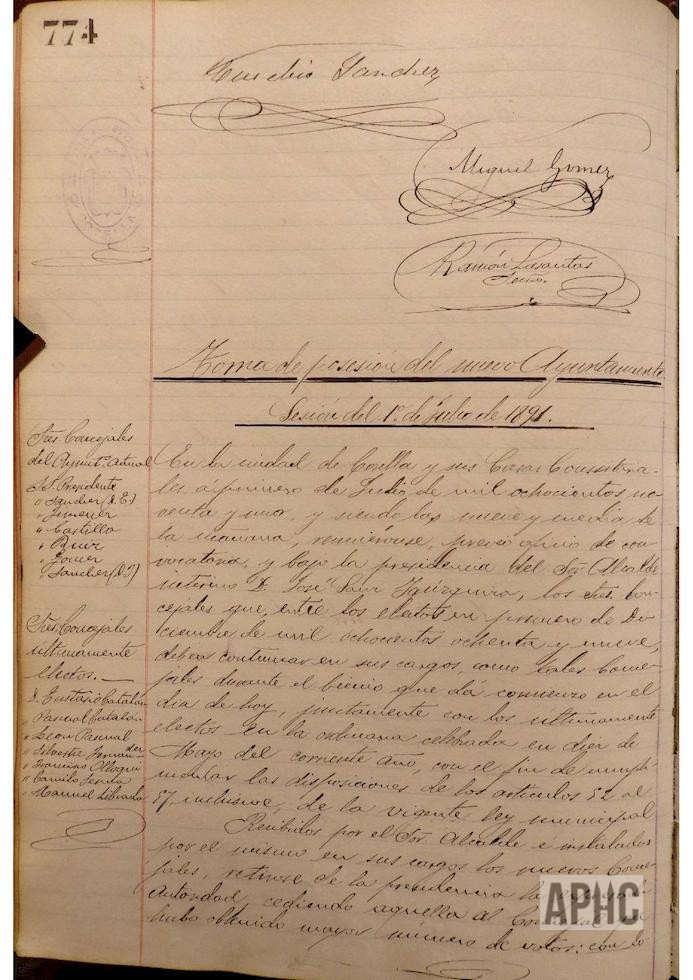 774
Eusebio Sanchez
Miguel Gomez
Ramón Lasantas
Secrio.
Toma de posesión del nuevo Ayuntamiento
Sesión del 1º de Julio de 1891.
Sres. Concejales
del Ayuntº. actual
Sr. Presidente
" Sanchez (D. E.)
" Jimenez
" Castillo
" Ruiz
" Gomez
" Sanchez (D. J)
Sres. Concejales
ultimamente
electos. —
D. Eustasio Catalan
" Pascual Catalán
" Leon Pascual
" Silvestre Fernandez
" Francisco Olloqui
" Camilo
" Manuel Librada
En la ciudad de Corella y sus Casas Consistoria-
les á primero de Julio de mil ochocientos no-
venta y uno, y siendo las nueve y media de
la mañana, reuniéronse, previo oficio de con-
vocatoria, y bajo la presidencia del Sor. Alcalde
interino D. José Sanz los Sres. Con-
cejales que, entre los electos en primero de Di-
ciembre de mil ochocientos ochenta y nueve,
deben continuar en sus cargos, como tales Conce-
jales durante el bienio que dá comienzo en el
dia de hoy, juntamente con los ultimamente
electos en la ordinaria celebrada en diez de
Mayo del corriente año, con el fin de cumpli-
mentar las disposiciones de los articulos 52 al
57, inclusive, de la vigente ley municipal
Recibidos por el Sor. Alcalde é instalados
por el mismo en sus cargos los nuevos Conce-
jales, retirose de la presidencia la
Autoridad, cediendo aquella al Concejal
hubo obtenido mayor número de votos; con lo
APHC